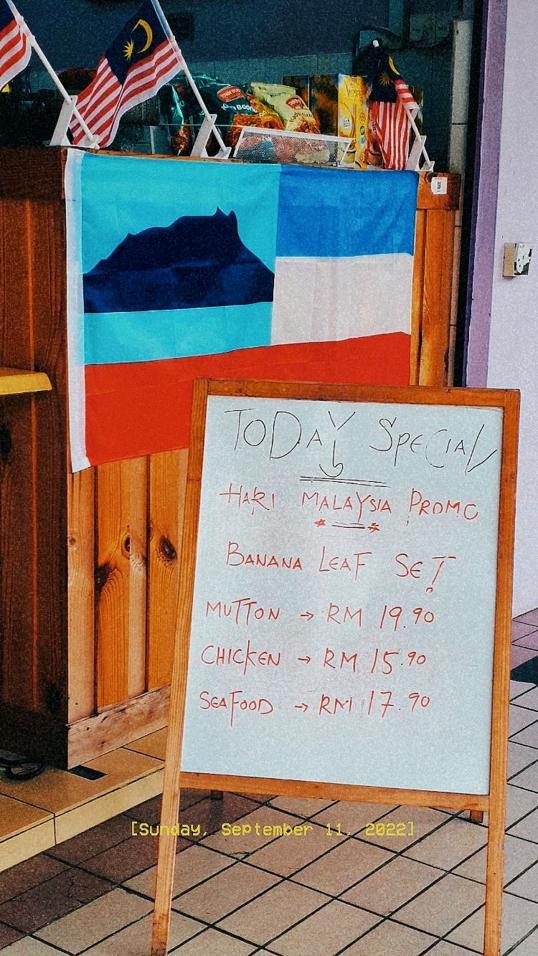 TODAY SPECIAL
HARI MALAYSIA PROMO
BANANA LEAF SET
MUTTON → RM 19.90
CHICKEN → RM 15.90
SEAFOOD → RM 17.90
[Sunday, September 11, 2022]